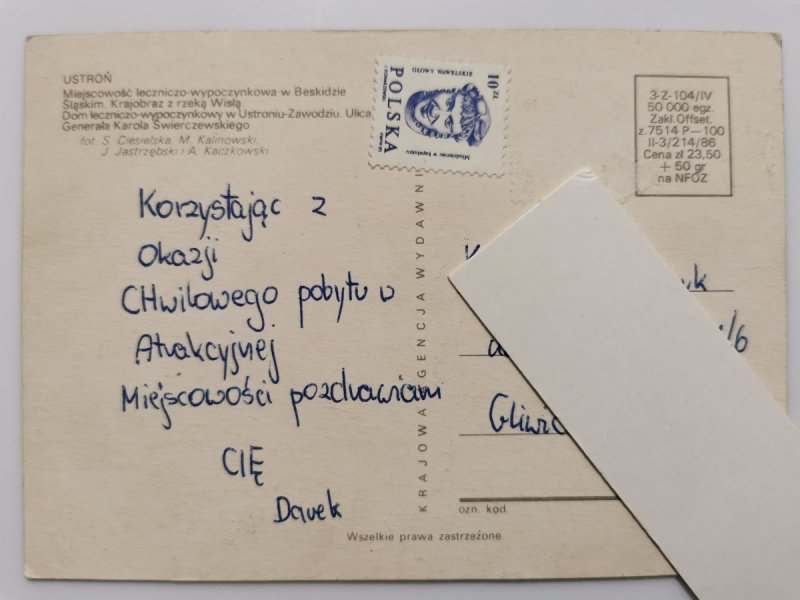 USTROŃ
Miejscowość leczniczo-wypoczynkowa w Beskidzie
Śląskim. Krajobraz z rzeką Wisłą
Dom leczniczo-wypoczynkowy w Ustroniu-Zawodziu. Ulica
Generała Karola Świerczewskiego
fot. S. Ciesielska, M. Kalinowski,
J. Jastrzębski i A. Kaczkowski
GŁOWY WAWELSKIE
10 ZŁ
POLSKA
Młodzieniec w kapeluszu
3-Z-104/IV
50 000 egz.
Zakł. Offset.
z. 7514 P—100
II-3/214/86
Cena zł 23,50
+ 50 gr
na NFOZ
Korzystając z
Okazji
CHwilowego pobytu w
Atrakcyjnej
Miejscowości pozdrawiam
CIĘ
Darek
KRAJOWA AGENCJA WYDAWN
Gliwic
ozn. kod.
Wszelkie prawa zastrzeżone